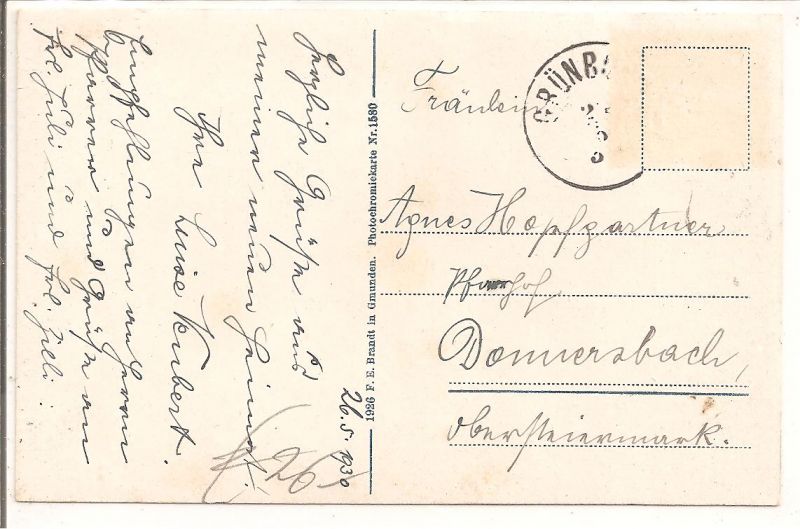 Herzliche Grüße aus
meiner neuen Heimat!
Ihre Luise Kubert.
Empfehlungen an Herrn
Pfarrer und Grüße an
Frl. Juli und Frl. Zilli.
26. 5. 1930
26
1926 F. E. Brandt in Gmunden. Photochromiekarte Nr. 1580
GRÜNBA
Fräulein
Agnes Hopfgartner
Pfarrhof
Donnersbach,
Obersteiermark.